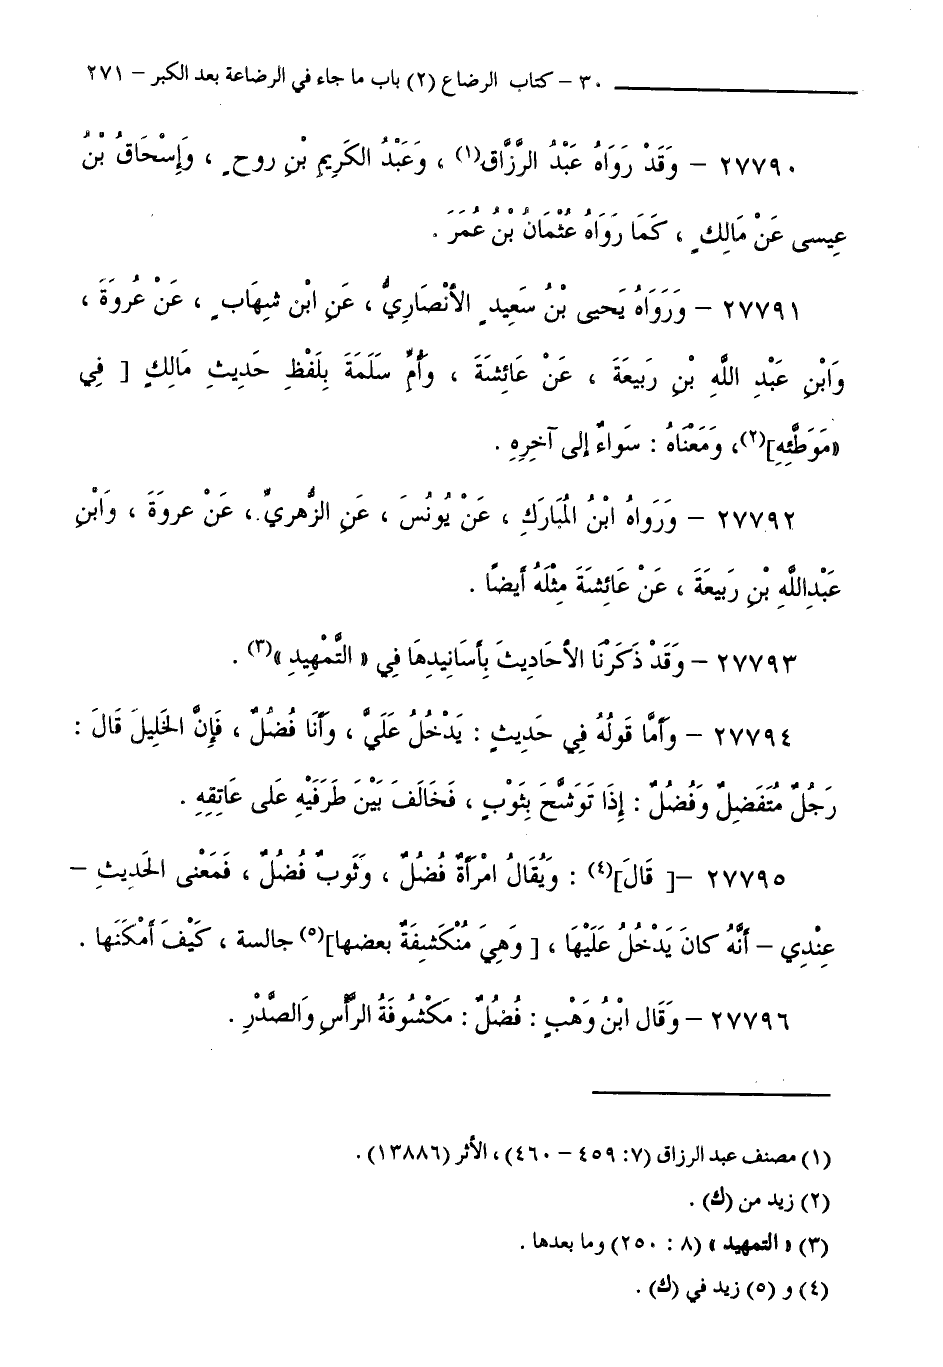 ٣٠ – كتاب الرضاع (٢) باب ما جاء في الرضاعة بعد الكبر – ٢٧١
٢٧٧٩٠ – وَقَدْ رَوَاهُ عَبْدُ الرَّزَّاقِ(١) ، وَعَبْدُ الكَرِيمِ بْنِ روحٍ ، وَإِسْحَاقُ بْنُ
عِيسى عَنْ مَالِكٍ ، كَمَا رَوَاهُ عُثْمَانُ بْنُ عُمَرَ .
٢٧٧٩١ – وَرَوَاهُ يَحيى بْنُ سَعِيدٍ الأَنْصَارِيُّ ، عَنِ ابْنِ شِهَابٍ ، عَنْ عُروَةَ ،
وَابْنِ عَبْدِ اللَّهِ بْنِ رَبِيعَةَ ، عَنْ عَائِشَةَ ، وَأُمِّ سَلَمَةَ بِلَفْظِ حَدِيثِ مَالِكٍ [ فِي
«مَوَطَّئِهِ](٢)، وَمَعْنَاهُ : سَواءٌ إِلى آخِرِهِ .
٢٧٧٩٢ – وَرَواهُ ابْنُ الْمُبَارَكِ ، عَنْ يُونُسَ ، عَنِ الزُّهريِّ ، عَنْ عروَةَ ، وَابْنِ
عَبْدِاللَّهِ بْنِ رَبِيعَةَ ، عَنْ عَائِشَةَ مِثْلَهُ أَيضًا .
٢٧٧٩٣ – وَقَدْ ذَكَرْنَا الأَحَادِيثَ بِأَسَانِيدِهَا فِي « التَّمْهِيدِ »(٣) .
٢٧٧٩٤ – وَأَمَّا قَولُهُ فِي حَدِيثِ : يَدْخُلُ عَلَيَّ ، وَأَنَا فُضُلٌ ، فَإِنَّ الخَلِيلَ قَالَ :
رَجُلٌ مُتَفَضِلٌ وَفُضُلٌ : إِذَا تَوَشَّحَ بِثَوْبٍ ، فَخَالَفَ بَيْنَ طَرَفَيْهِ عَلى عَاتِقِهِ .
٢٧٧٩٥ –[ قَالَ](٤) : وَيُقَالُ امْرَأَةٌ فُضُلٌ ، وَثَوبٌ فُضُلٌ ، فَمَعْنى الحَدِيثِ –
عِنْدِي – أَنَّهُ كانَ يَدْخُلُ عَلَيْهَا ، [ وَهِيَ مُنْكَشِفَةٌ بعضها](٥) جالسة ، كَيْفَ أَمْكَنَها .
٢٧٧٩٦ – وَقَال ابْنُ وَهْبٍ : فُضُلٌ : مَكْشُوفَةُ الرَّأْسِ وَالصَّدْرِ .
(١) مصنف عبد الرزاق (٧: ٤٥٩ – ٤٦٠)، الأثر (١٣٨٨٦) .
(٢) زيد من (ك) .
(٣) « التمهيد » (٨ : ٢٥٠) وما بعدها .
(٤) و (٥) زيد في (ك) .